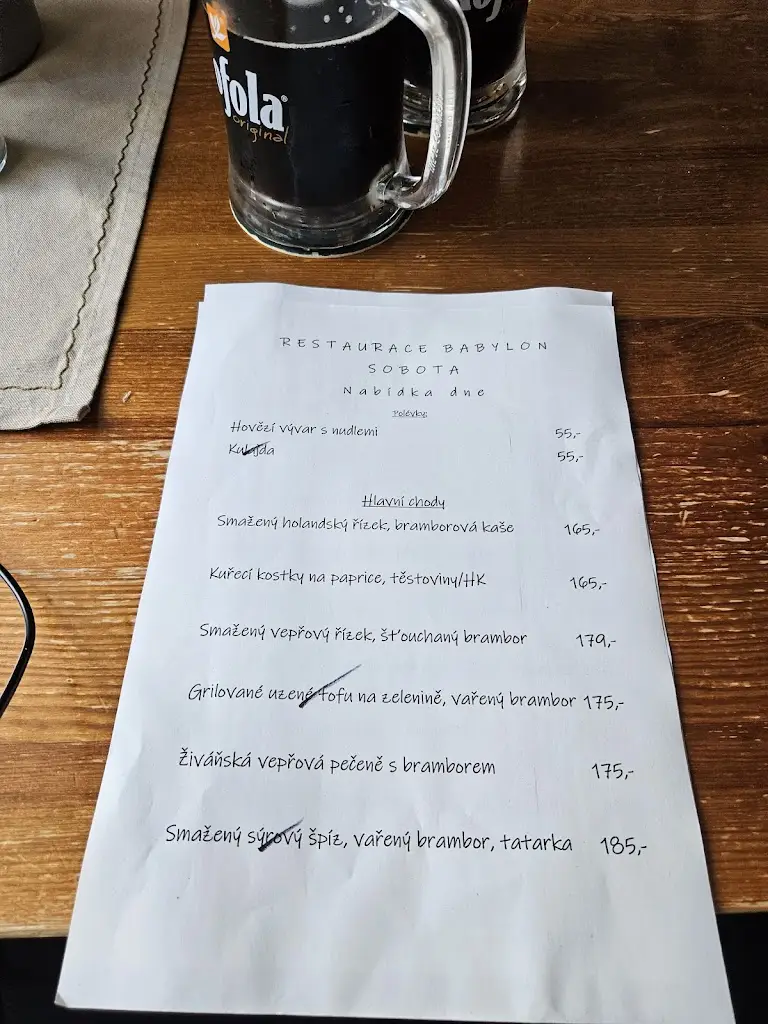 fola®
original
RESTAURACE BABYLON
SOBOTA
Nabídka dne
Polévky:
Hovězí vývar s nudlemi 55,-
Kulajda 55,-
Hlavní chody
Smažený holandský řízek, bramborová kaše 165,-
Kuřecí kostky na paprice, těstoviny/HK 165,-
Smažený vepřový řízek, šťouchaný brambor 179,-
Grilované uzené tofu na zelenině, vařený brambor 175,-
Živáňská vepřová pečeně s bramborem 175,-
Smažený sýrový špíz, vařený brambor, tatarka 185,-